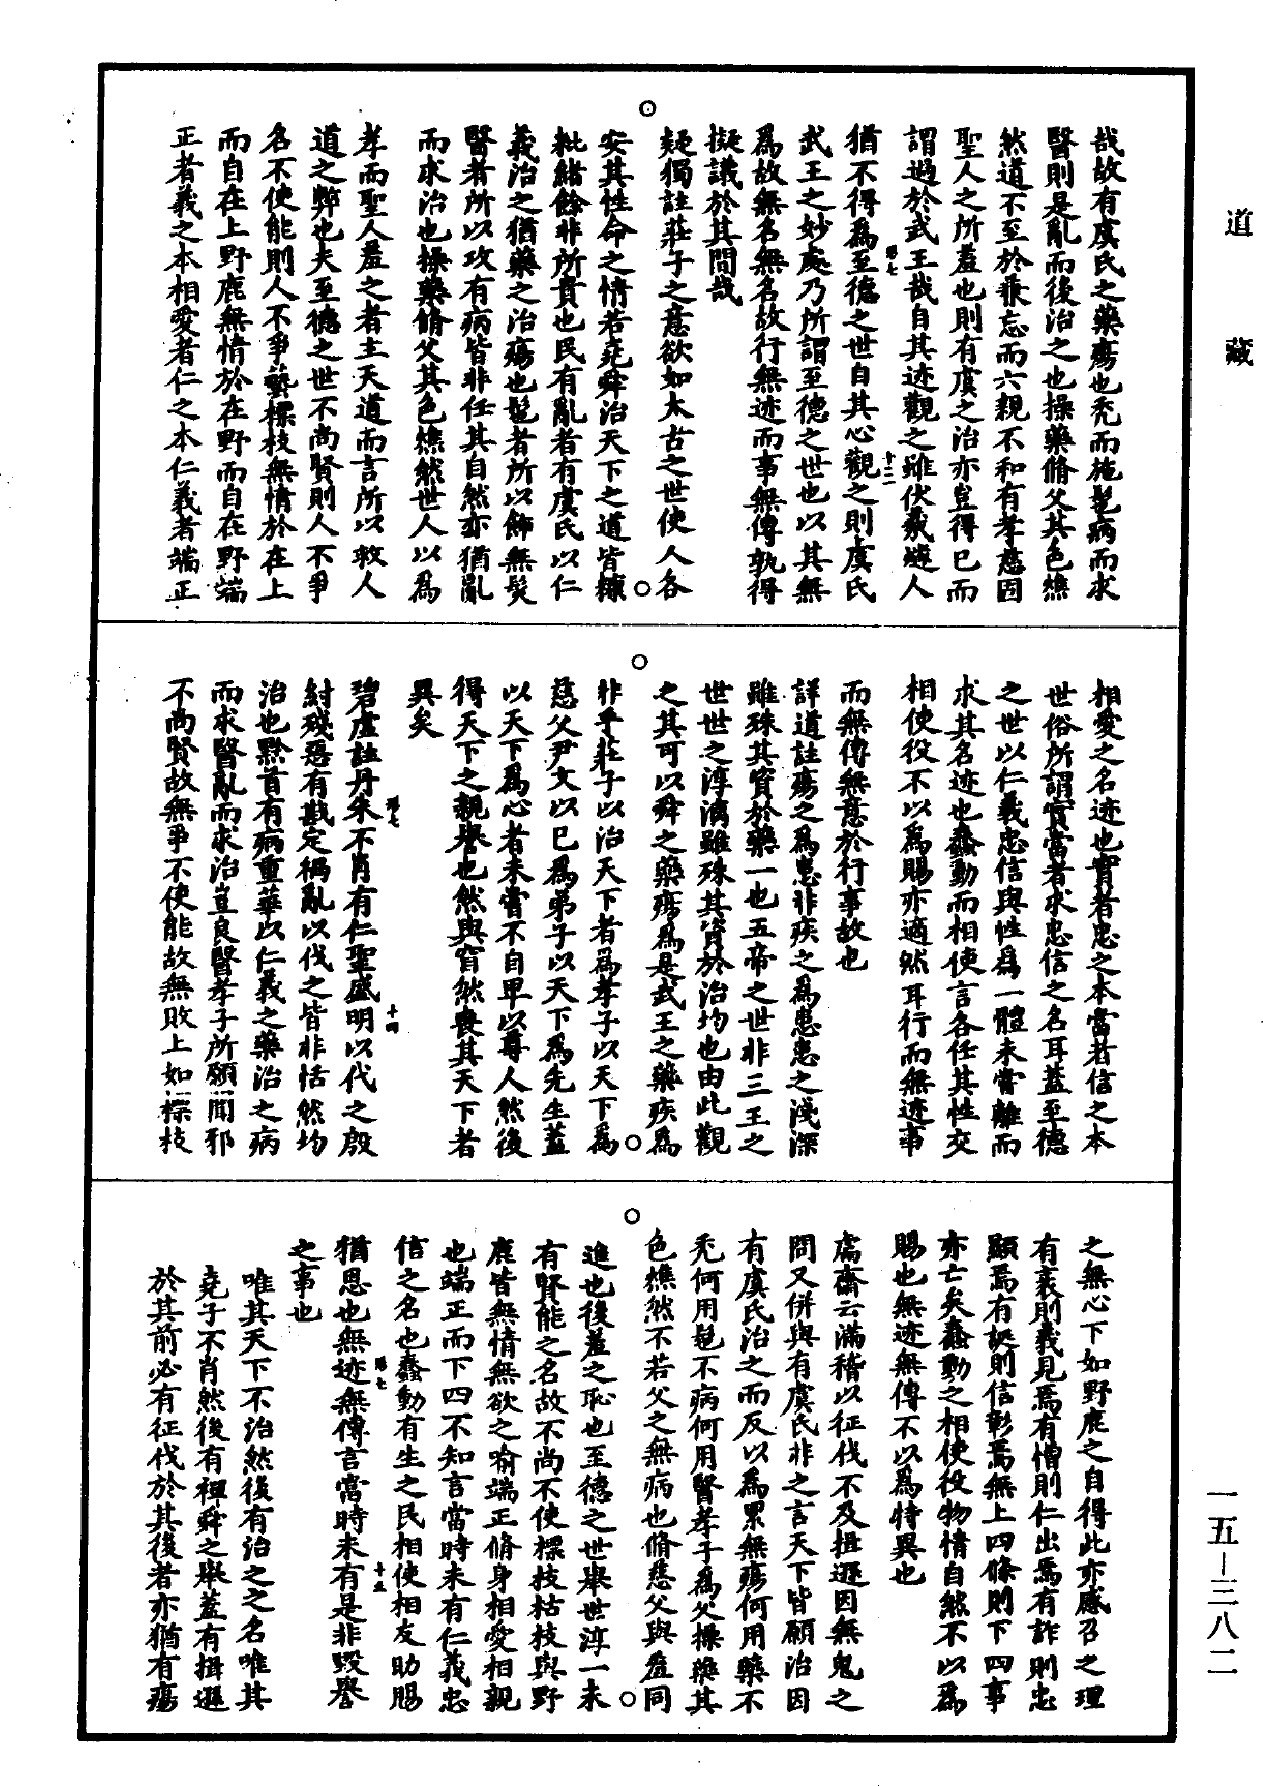 道藏
哉故有虞氏之藥瘍也禿而施髢病而求
醫則是亂而後治之也操藥脩父其色燋
然道不至於兼忘而六親不和有孝慈固
聖人之所羞也則有虞之治亦豈得已而
謂過於武王哉自其迹觀之雖伏羲燧人
猶不得為至德之世自其心觀之則虞氏
武王之妙處乃所謂至德之世也以其無
為故無名無名故行無迹而事無傳孰得
擬議於其間哉
疑獨註莊子之意欲如太古之世使人各
安其性命之情若堯舜治天下之道皆糠
粃緒餘非所貴也民有亂者有虞氏以仁
義治之猶藥之治瘍也髢者所以飾無髮
醫者所以攻有病皆非任其自然亦猶亂
而求治也操藥脩父其色燋然世人以為
孝而聖人羞之者主天道而言所以救人
道之弊也夫至德之世不尚賢則人不爭
名不使能則人不爭藝標枝無情於在上
而自在上野鹿無情於在野而自在野端
正者義之本相愛者仁之本仁義者端正
相愛之名迹也實者忠之本當者信之本
世俗所謂實當者求忠信之名耳蓋至德
之世以仁義忠信與性為一體未嘗離而
求其名迹也蠢動而相使言各任其性交
相使役不以為賜亦適然耳行而無迹事
而無傳無意於行事故也
詳道註瘍之為患非疾之為患患之淺深
雖殊其資於藥一也五帝之世非三王之
世世之淳漓雖殊其資於治均也由此觀
之其可以舜之藥瘍為是武王之藥疾為
非乎莊子以治天下者為孝子以天下為
慈父尹文以己為弟子以天下為先生蓋
以天下為心者未嘗不自卑以尊人然後
得天下之親譽也然與窅然喪其天下者
異矣
碧虛註丹朱不肖有仁聖盛明以代之殷
紂殘惡有戡定禍亂以伐之皆非恬然均
治也黔首有病重華以仁義之藥治之病
而求醫亂而求治豈良醫孝子所願聞邪
不尚賢故無爭不使能故無敗上如標枝
之無心下如野鹿之自得此亦感召之理
有衰則義見焉有憎則仁出焉有詐則忠
顯焉有誕則信彰焉無上四條則下四事
亦亡矣蠢動之相使役物情自然不以為
賜也無迹無傳不以為特異也
鬳齋云滿稽以征伐不及揖遜因無鬼之
問又併與有虞氏非之言天下皆願治因
有虞氏治之而反以為累無瘍何用藥不
禿何用髢不病何用醫孝子為父操藥其
色燋然不若父之無病也脩慈父與羞同
進也後羞之恥也至德之世舉世淳一未
有賢能之名故不尚不使標枝枯枝與野
鹿皆無情無欲之喻端正脩身相愛相親
也端正而下四不知言當時未有仁義忠
信之名也蠢動有生之民相使相友助賜
猶恩也無迹無傳言當時未有是非毀譽
之事也
唯其天下不治然後有治之之名唯其
堯子不肖然後有禪舜之舉蓋有揖遜
於其前必有征伐於其後者亦猶有瘍
一五—三八二